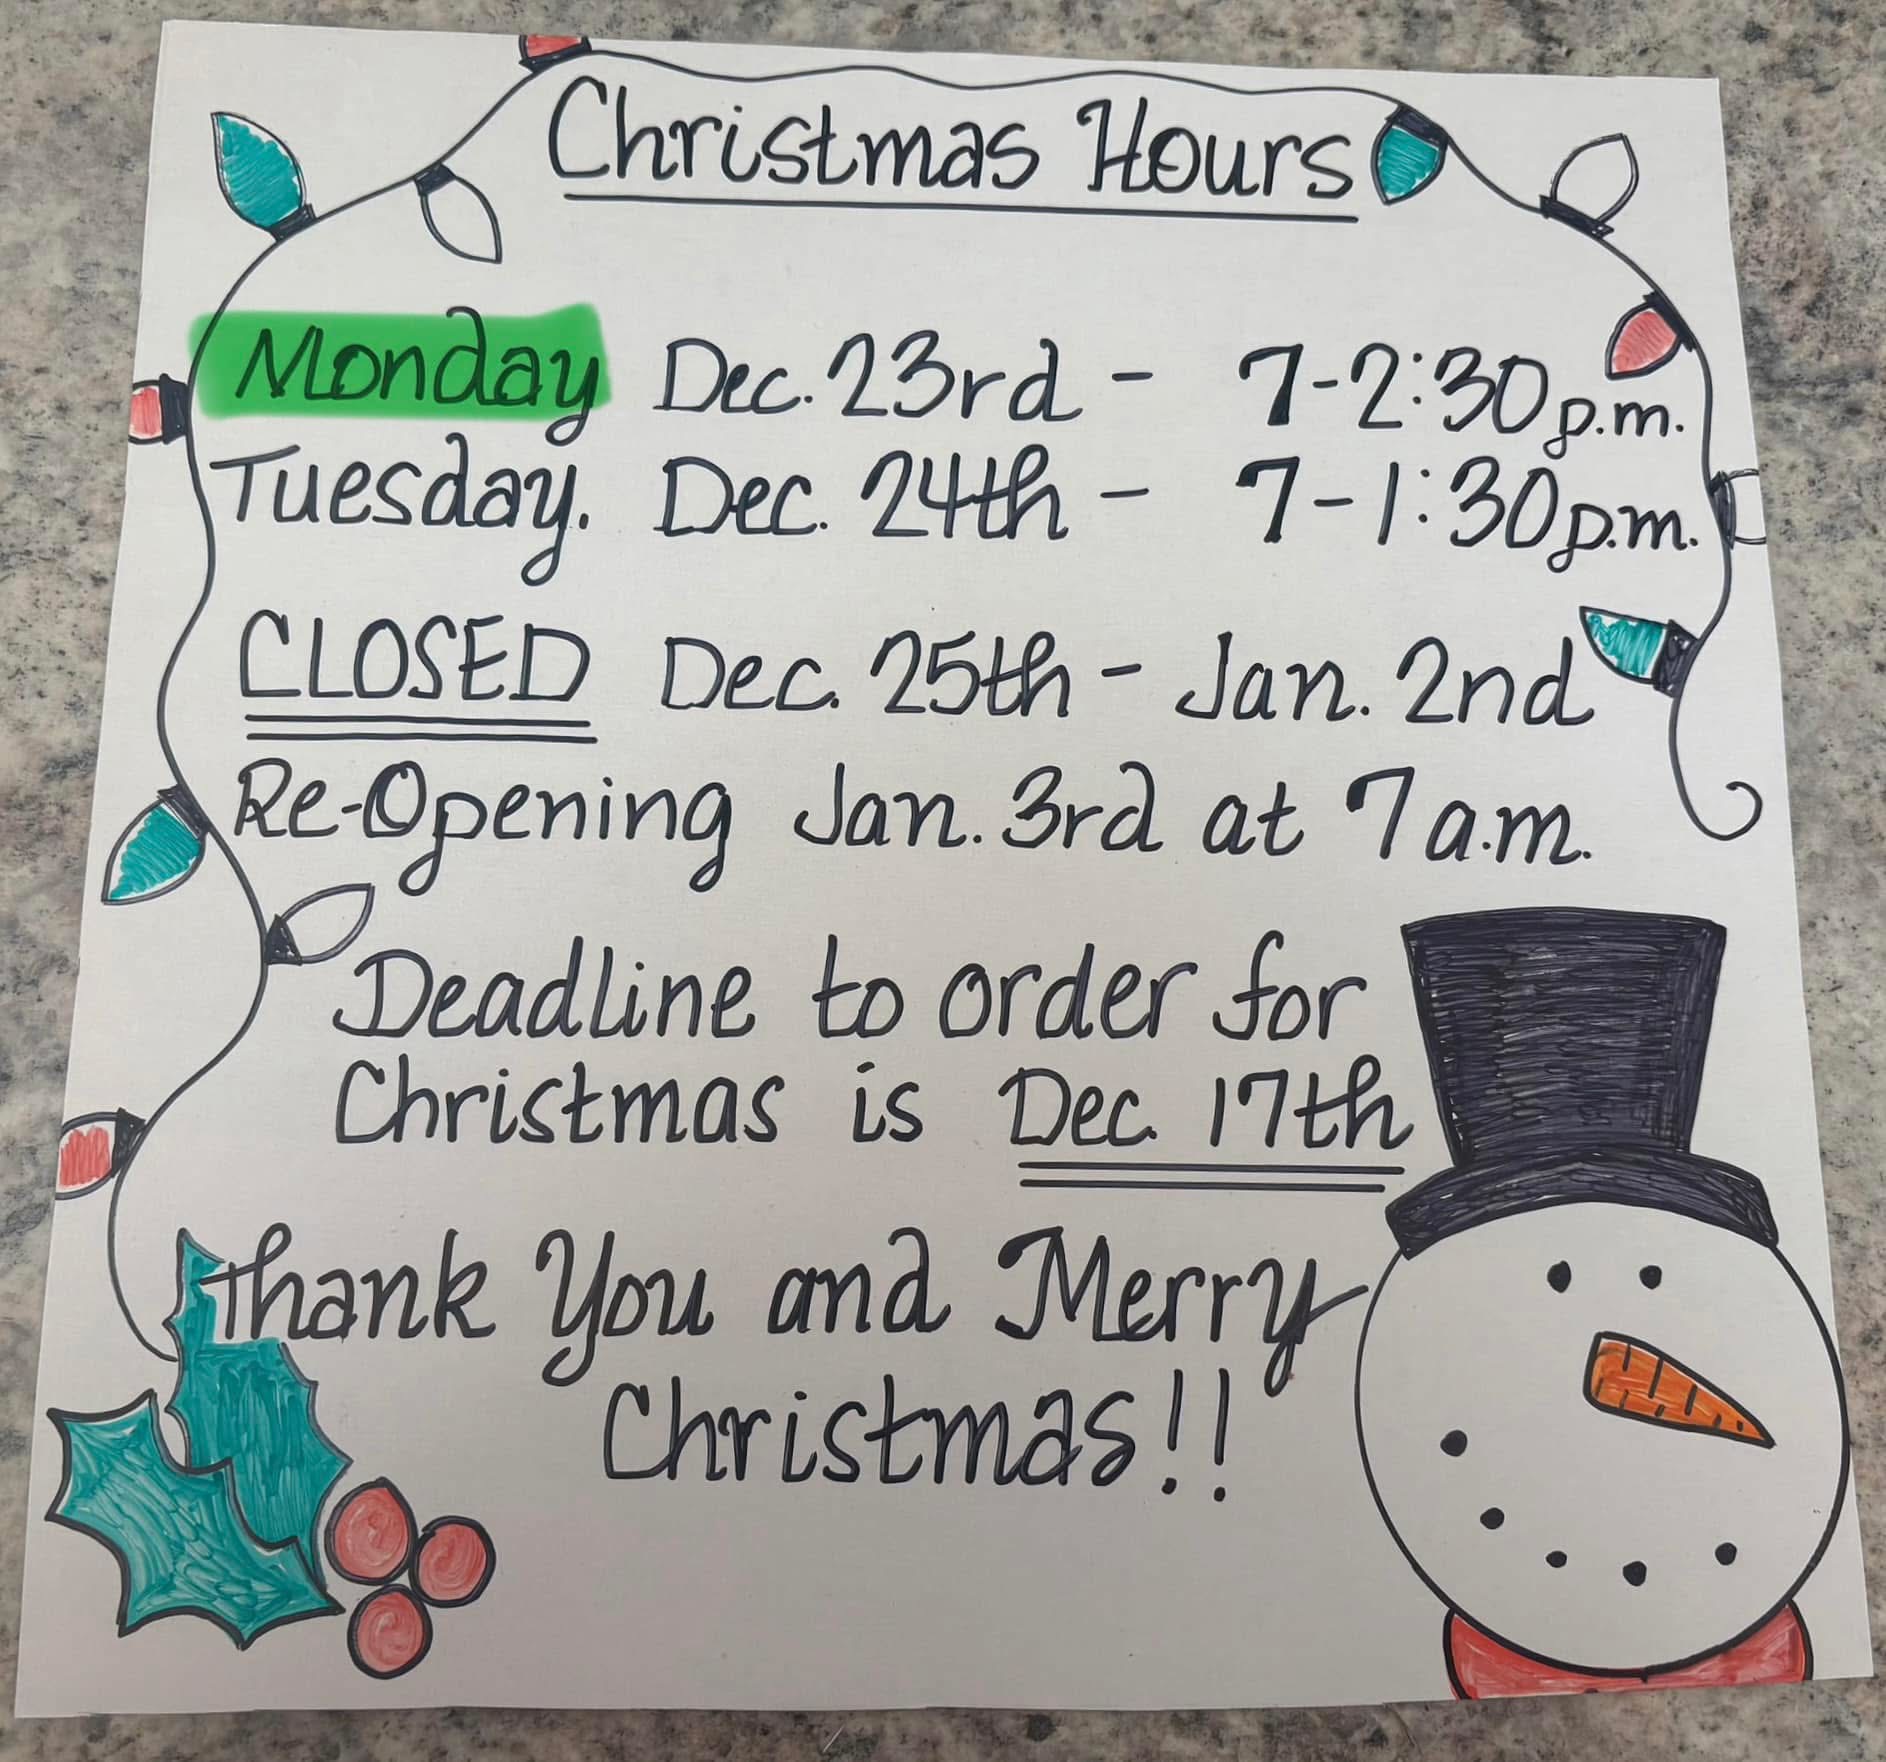 Christmas Hours
Monday Dec. 23rd - 7-2:30 p.m.
Tuesday. Dec. 24th - 7-1:30 p.m.
CLOSED Dec. 25th - Jan. 2nd
Re-Opening Jan. 3rd at 7 a.m.
Deadline to order for
Christmas is Dec. 17th
Thank You and Merry
Christmas!!